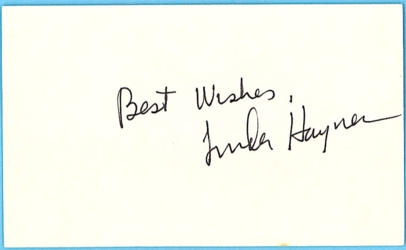 Best Wishes,
Linda Haynes